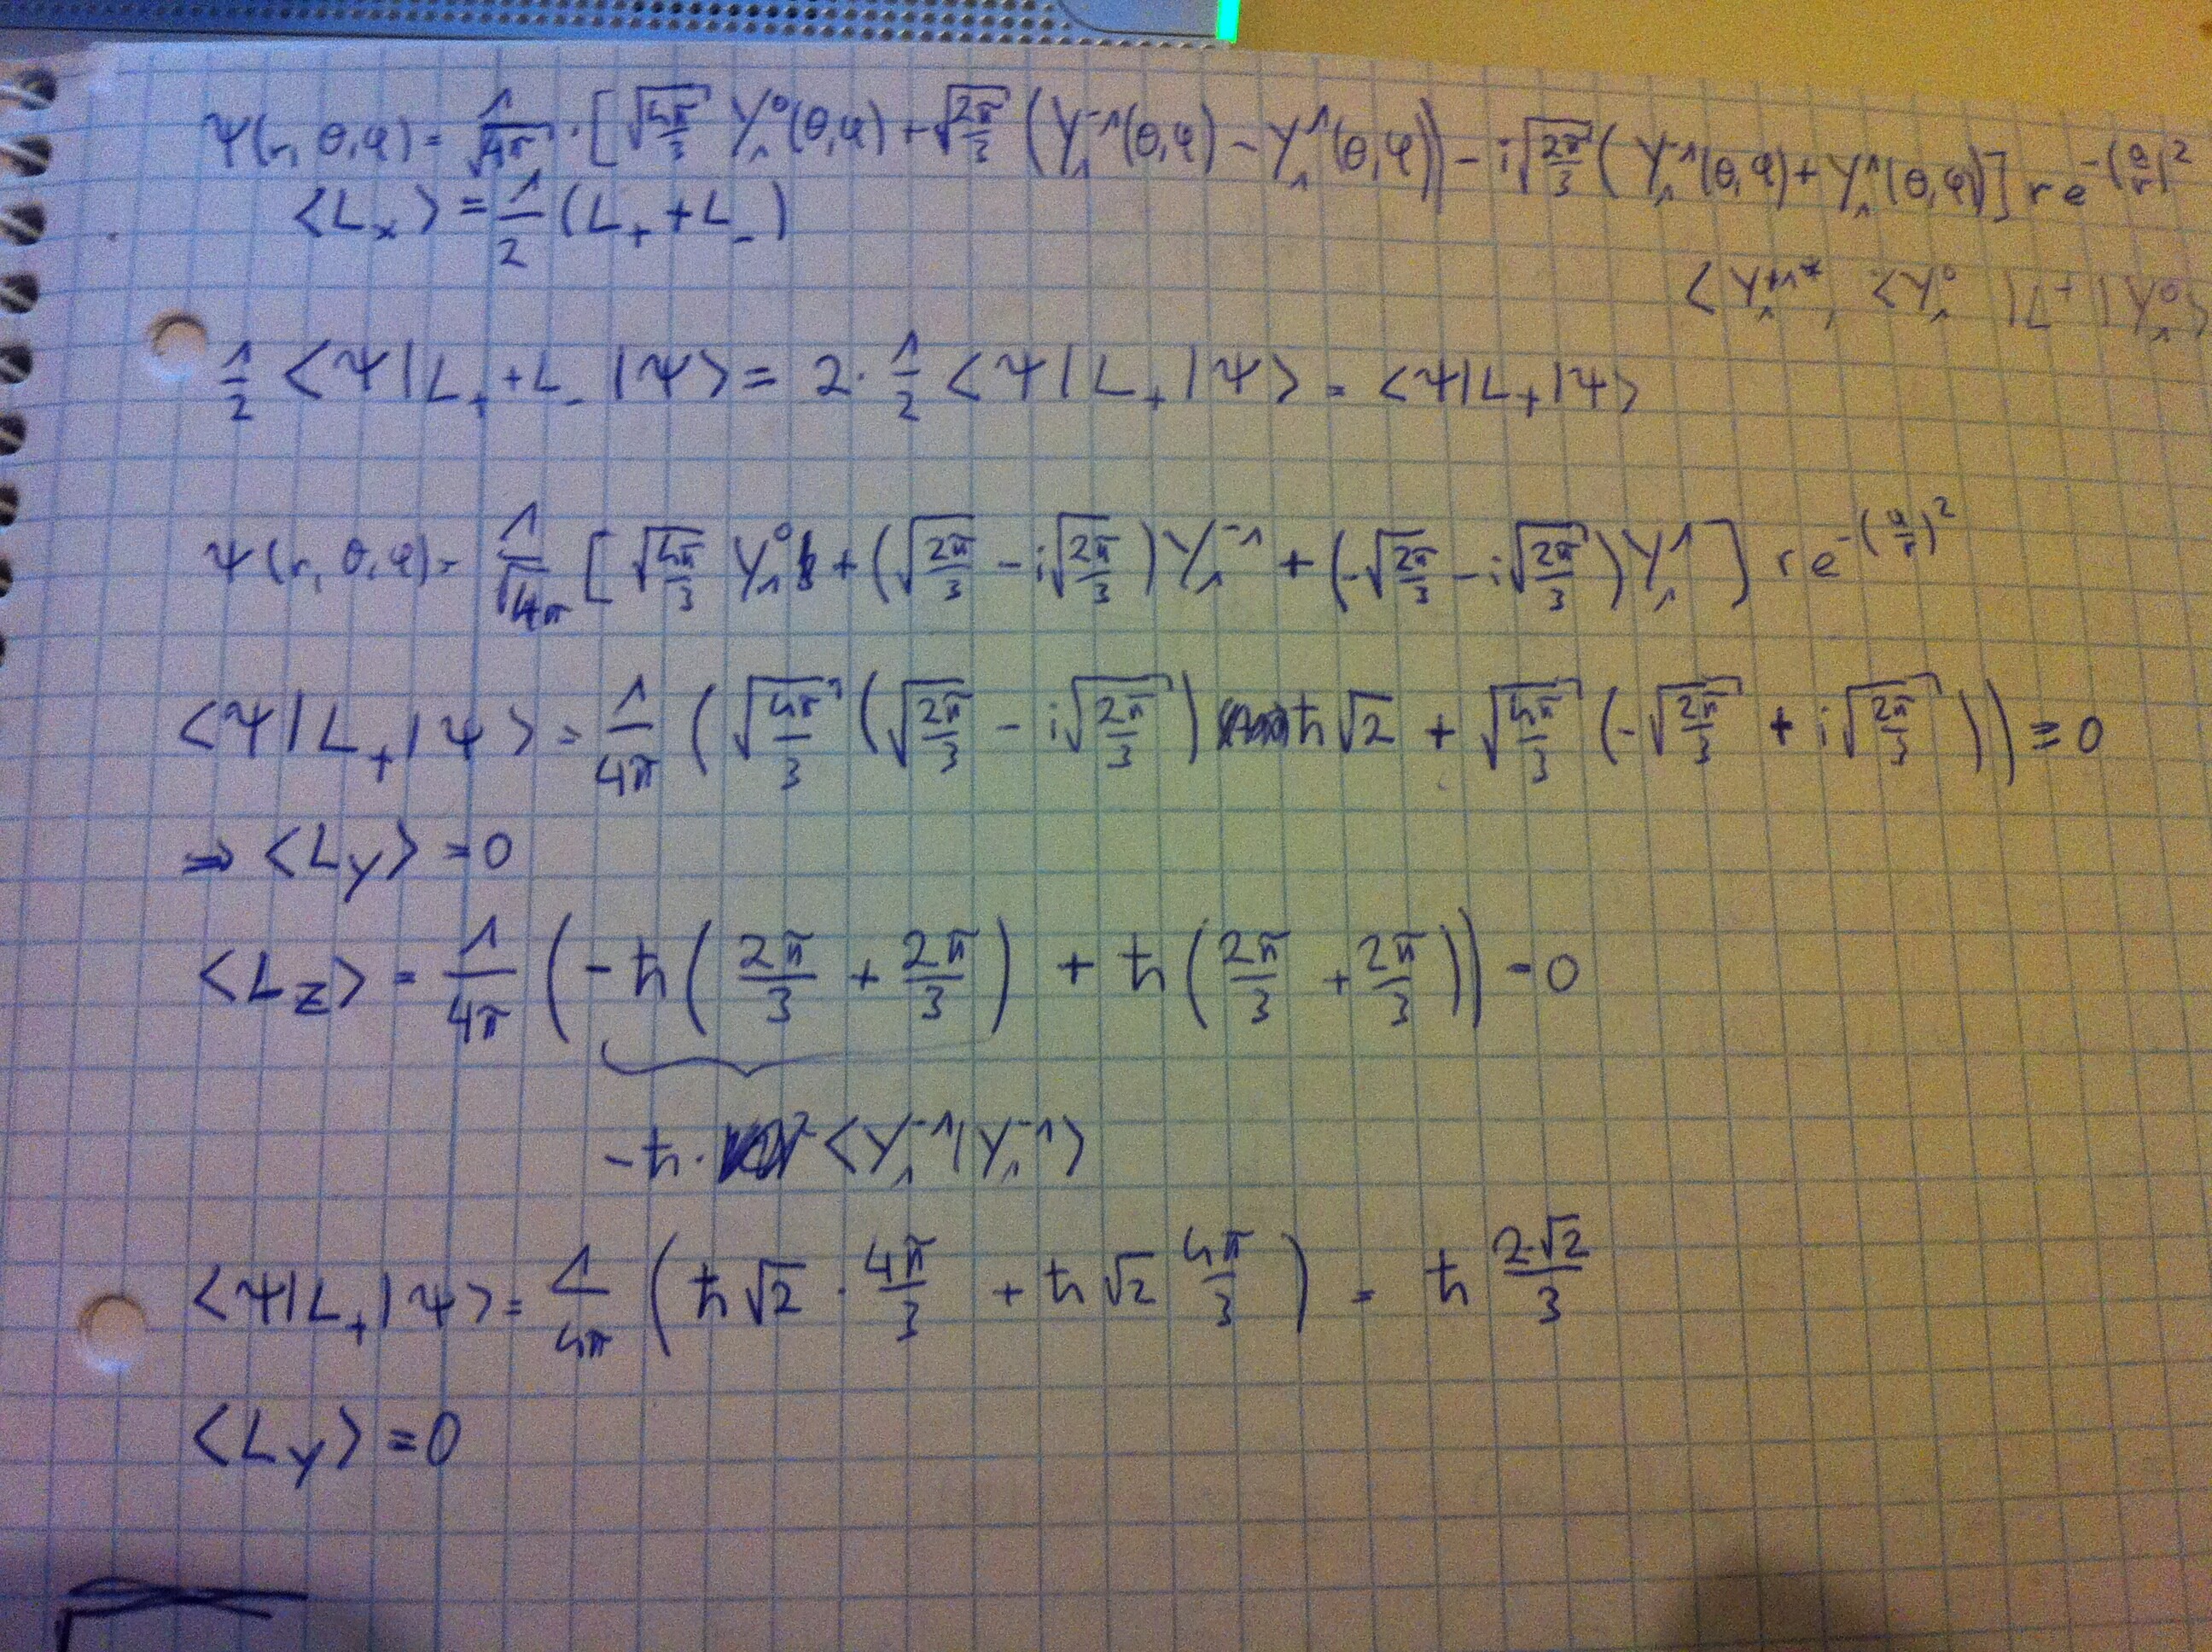 Ψ(r, θ, φ) = 1/√4π · [√(4π/3) Y₁⁰(θ,φ) + √(2π/3) (Y₁⁻¹(θ,φ) − Y₁¹(θ,φ)) − i√(2π/3) (Y₁⁻¹(θ,φ) + Y₁¹(θ,φ)] r e^−(a/r)²
⟨Lₓ⟩ = 1/2 (L₊ + L₋)
⟨Y₁⁺¹*, ⟨Y₁⁰ |L⁺|Y₁⁰⟩
1/2 ⟨Ψ|L₊ + L₋|Ψ⟩ = 2 · 1/2 ⟨Ψ|L₊|Ψ⟩ = ⟨Ψ|L₊|Ψ⟩
Ψ(r, θ, φ) = 1/√4π [√(4π/3) Y₁⁰ + (√(2π/3) − i√(2π/3)) Y₁⁻¹ + (−√(2π/3) − i√(2π/3)) Y₁¹] r e^−(a/r)²
⟨Ψ|L₊|Ψ⟩ = 1/4π (√(4π/3) (√(2π/3) − i√(2π/3)) ħ√2 + √(4π/3) (−√(2π/3) + i√(2π/3))) = 0
⇒ ⟨L_y⟩ = 0
⟨L_z⟩ = 1/4π (−ħ(2π/3 + 2π/3) + ħ(2π/3 + 2π/3)) = 0
−ħ · ⟨Y₁⁻¹|Y₁⁻¹⟩
⟨Ψ|L₊|Ψ⟩ = 1/4π (ħ√2 · 4π/3 + ħ√2 4π/3) = ħ 2·√2/3
⟨L_y⟩ = 0